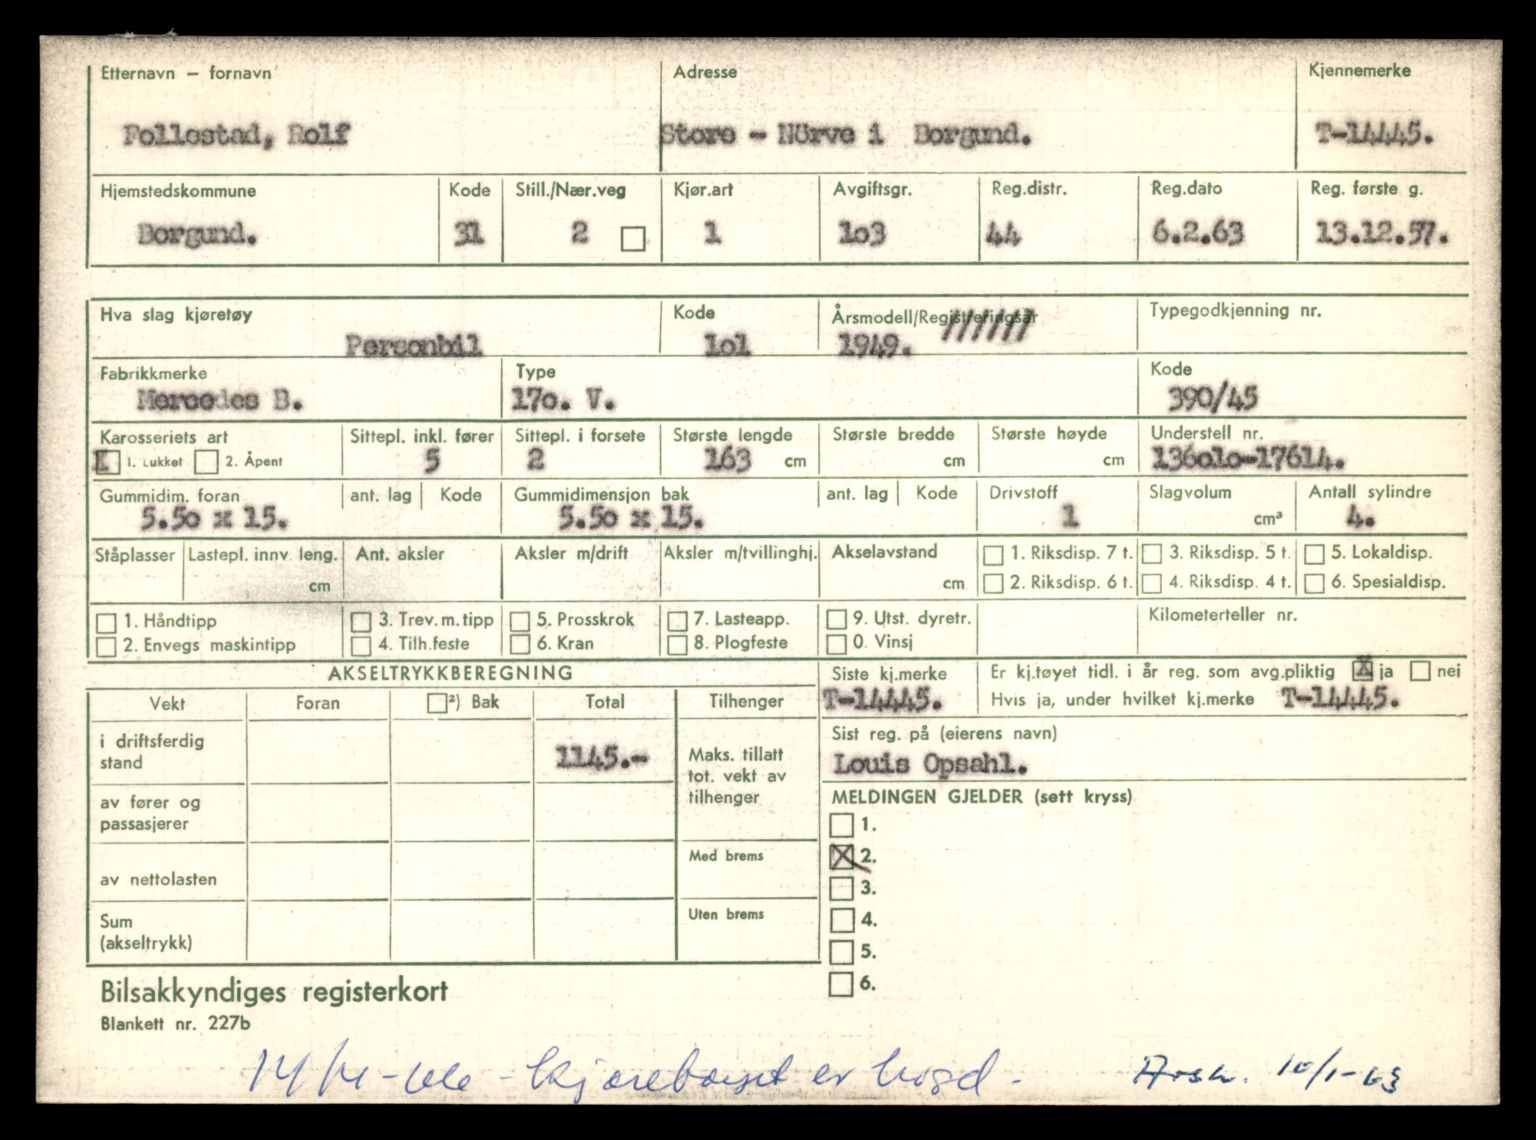 Etternavn – fornavn Adresse Kjennemerke
Follestad, Rolf Store - Nörve i Borgund. T-14445.
Hjemstedskommune Kode Still./Nær.veg Kjør.art Avgiftsgr. Reg.distr. Reg.dato Reg. første g.
Borgund. 31 2 1 1o3 44 6.2.63 13.12.57.
Hva slag kjøretøy Kode Årsmodell/Registreringsår Typegodkjenning nr.
Personbil 1o1 1949. //////
Fabrikkmerke Type Kode
Mercedes B. 17o. V. 390/45
Karosseriets art Sittepl. inkl. fører Sittepl. i forsete Største lengde Største bredde Største høyde Understell nr.
X 1. Lukket 2. Åpent 5 2 163 cm cm cm 136o1o-17614.
Gummidim. foran ant. lag Kode Gummidimensjon bak ant. lag Kode Drivstoff Slagvolum Antall sylindre
5.5o x 15. 5.5o x 15. 1 cm³ 4.
Ståplasser Lastepl. innv. leng. Ant. aksler Aksler m/drift Aksler m/tvillinghj. Akselavstand 1. Riksdisp. 7 t. 3. Riksdisp. 5 t. 5. Lokaldisp.
cm cm 2. Riksdisp. 6 t. 4. Riksdisp. 4 t. 6. Spesialdisp.
1. Håndtipp 3. Trev. m. tipp 5. Prosskrok 7. Lasteapp. 9. Utst. dyretr. Kilometerteller nr.
2. Envegs maskintipp 4. Tilh.feste 6. Kran 8. Plogfeste 0. Vinsj
AKSELTRYKKBEREGNING Siste kj.merke Er kj.tøyet tidl. i år reg. som avg.pliktig X ja nei
T-14445. Hvis ja, under hvilket kj.merke T-14445.
Vekt Foran ²) Bak Total Tilhenger
Sist reg. på (eierens navn)
Louis Opsahl.
i driftsferdig stand 1145.- Maks. tillatt tot. vekt av tilhenger
MELDINGEN GJELDER (sett kryss)
av fører og passasjerer
1.
Med brems X 2.
av nettolasten 3.
Uten brems 4.
Sum (akseltrykk) 5.
6.
Bilsakkyndiges registerkort
Blankett nr. 227b
er